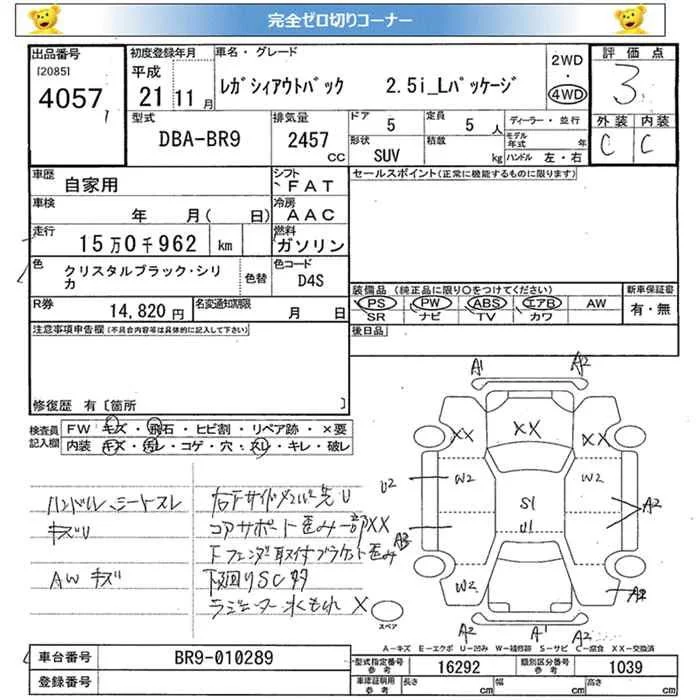 完全ゼロ切りコーナー
出品番号 [2085] 4057
初度登録年月 平成 21 11 月
車名・グレード レガシィアウトバック 2.5i_Lパッケージ
2WD ・ 4WD
評価点 3
外装 C 内装 C
型式 DBA-BR9
排気量 2457 CC
ドア 5 定員 5 人
形状 SUV 積載 kg
ディーラー・並行
モデル年式 年
ハンドル 左・右
車歴 自家用
シフト FAT
セールスポイント(正常に機能するものに限ります)
車検 年 月( 日)
冷房 AAC
走行 15万0千962 km
燃料 ガソリン
色 クリスタルブラック・シリカ 色替
色コード D4S
装備品 (純正品に限り○をつけてください)
新車保証書 有・無
PS PW ABS エアB AW
SR ナビ TV カワ
R券 14,820円
名変通知期限 月 日
後日品
注意事項申告欄(不具合内容等は具体的に記入して下さい)
修復歴 有 [箇所 ]
検査員記入欄
FW キズ・飛石・ヒビ割・リペア跡・×要
内装 キズ・汚レ・コゲ・穴・スレ・キレ・破レ
ハンドル、シートスレ
キズU
AW キズ
右Fサイドメンバー先U
コアサポート歪み一部XX
Fフェンダ取付ブラケット歪み
下回りSC多
ラジエーター水もれ X
A1 A2
XX XX XX
U2 W2 W2
S1
U1
A2
A3
W2 A2
A2 A1 A2
スペア
A-キズ E-エクボ U-凹み W-補修跡 S-サビ C-腐食 XX-交換済
車台番号 BR9-010289
型式指定番号 参考 16292
類別区分番号 参考 1039
登録番号
車庫証明用 参考 長さ cm 幅 cm 高さ cm